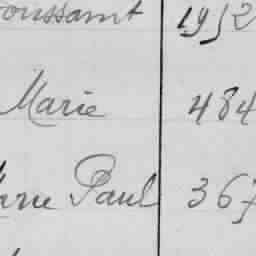 oussaint 1952
Marie 484
arie Paul 367